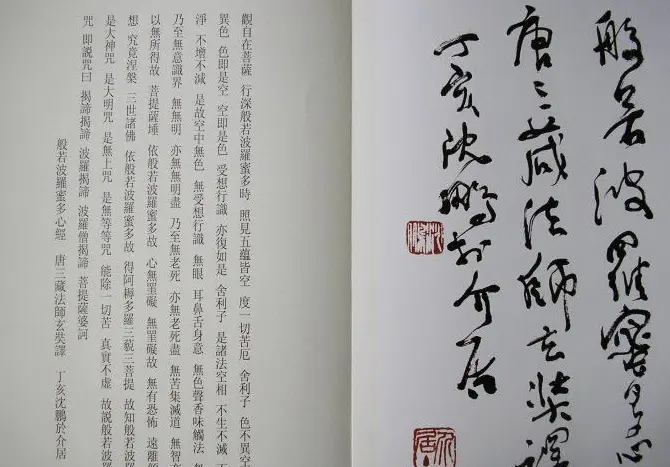 般若波羅蜜多心
唐三藏法師玄奘譯
丁亥沈鵬於介居
沈鵬
介居
觀自在菩薩 行深般若波羅蜜多時 照見五蘊皆空 度一切苦厄 舍利子 色不異空
異色 色即是空 空即是色 受想行識 亦復如是 舍利子 是諸法空相 不生不滅
淨 不增不減 是故空中無色 無受想行識 無眼 耳鼻舌身意 無色聲香味觸法
乃至無意識界 無無明 亦無無明盡 乃至無老死 亦無老死盡 無苦集滅道 無智
以無所得故 菩提薩埵 依般若波羅蜜多故 心無罣礙 無罣礙故 無有恐怖 遠離
想 究竟涅槃 三世諸佛 依般若波羅蜜多故 得阿耨多羅三藐三菩提 故知般若波羅
是大神咒 是大明咒 是無上咒 是無等等咒 能除一切苦 真實不虛 故說般若波羅
咒 即說咒曰 揭諦揭諦 波羅揭諦 波羅僧揭諦 菩提薩婆訶
般若波羅蜜多心經 唐三藏法師玄奘譯 丁亥沈鵬於介居